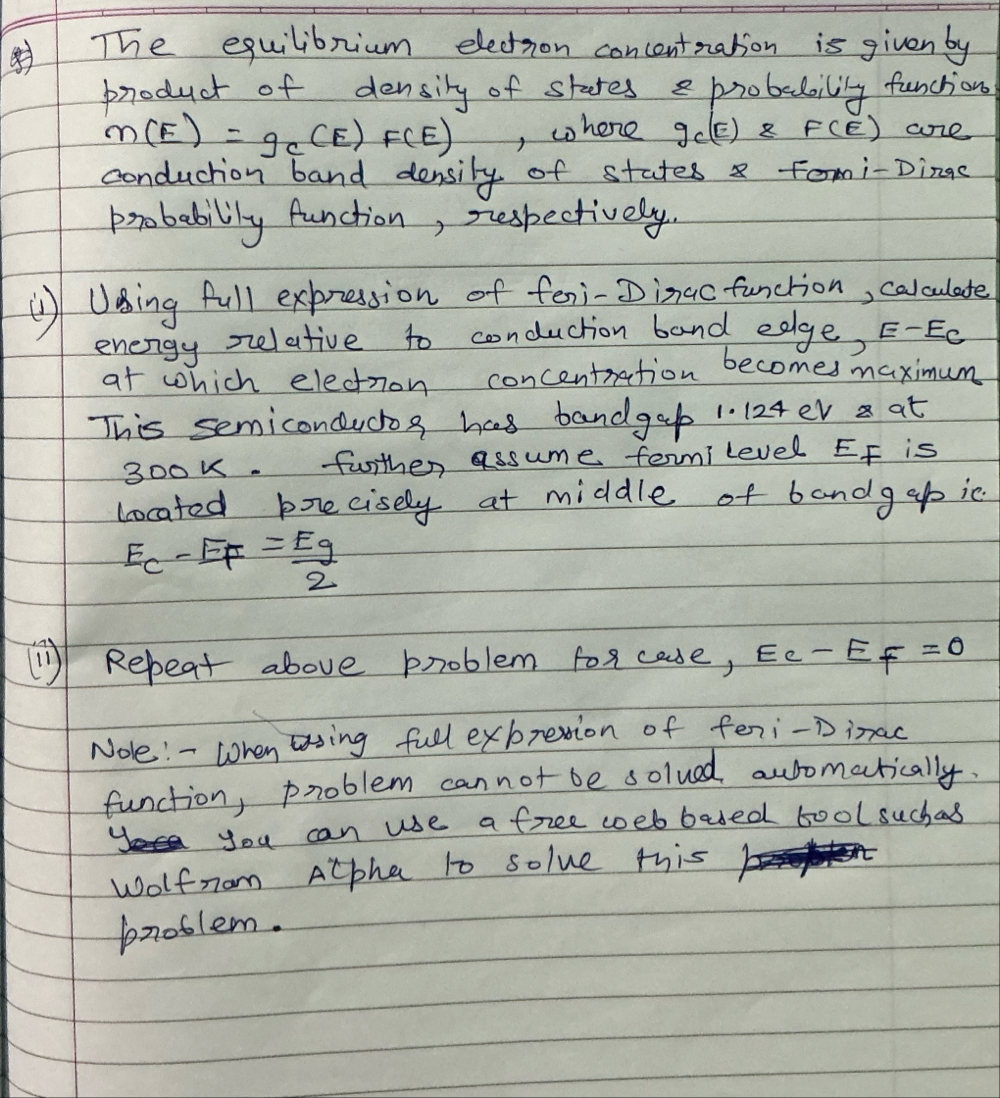 The equilibrium electron concentration is given by
product of density of states & probability function
n(E) = gc (E) F(E) , where gc(E) & F(E) are
conduction band density of states & fermi-Dirac
probability function , respectively.
(i) Using full expression of feri-Dirac function , calculate
energy relative to conduction band edge, E-Ec
at which electron concentration becomes maximum
This semiconductor has bandgap 1.124 eV & at
300K. further assume fermi level EF is
located precisely at middle of bandgap ie.
Ec - EF = Eg/2
(ii) Repeat above problem for case, Ec - EF = 0
Note:- When using full expression of feri-Dirac
function, problem cannot be solved automatically.
You can use a free web based tool such as
Wolfram Alpha to solve this
problem.